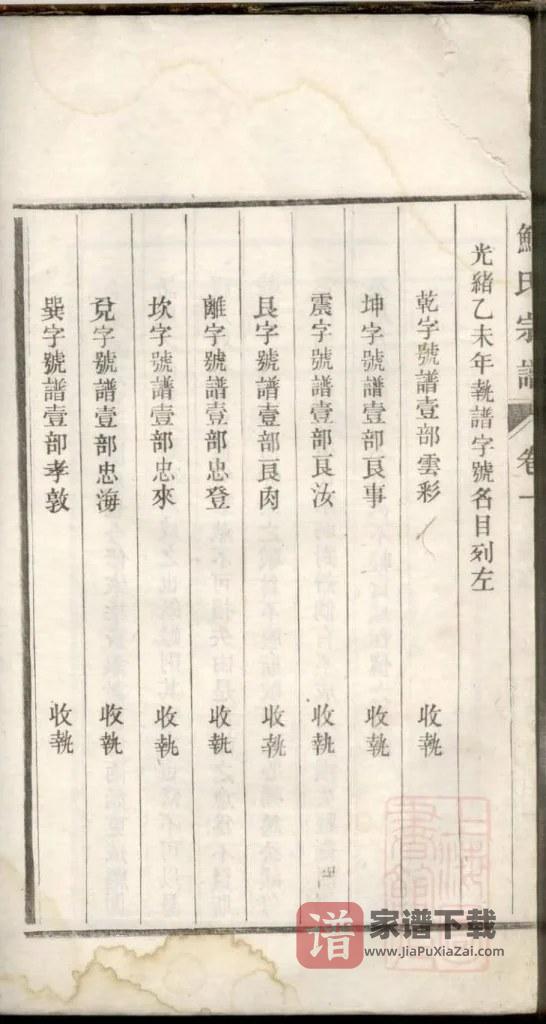 氏宗譜 卷一
光緒乙未年執譜字號名目列左
乾字號譜壹部雲彩 收執
坤字號譜壹部良事 收執
震字號譜壹部良汝 收執
艮字號譜壹部良肉 收執
離字號譜壹部忠登 收執
坎字號譜壹部忠來 收執
兌字號譜壹部忠海 收執
巽字號譜壹部孝敦 收執
谱 家谱下载
www.JiaPuXiaZai.com